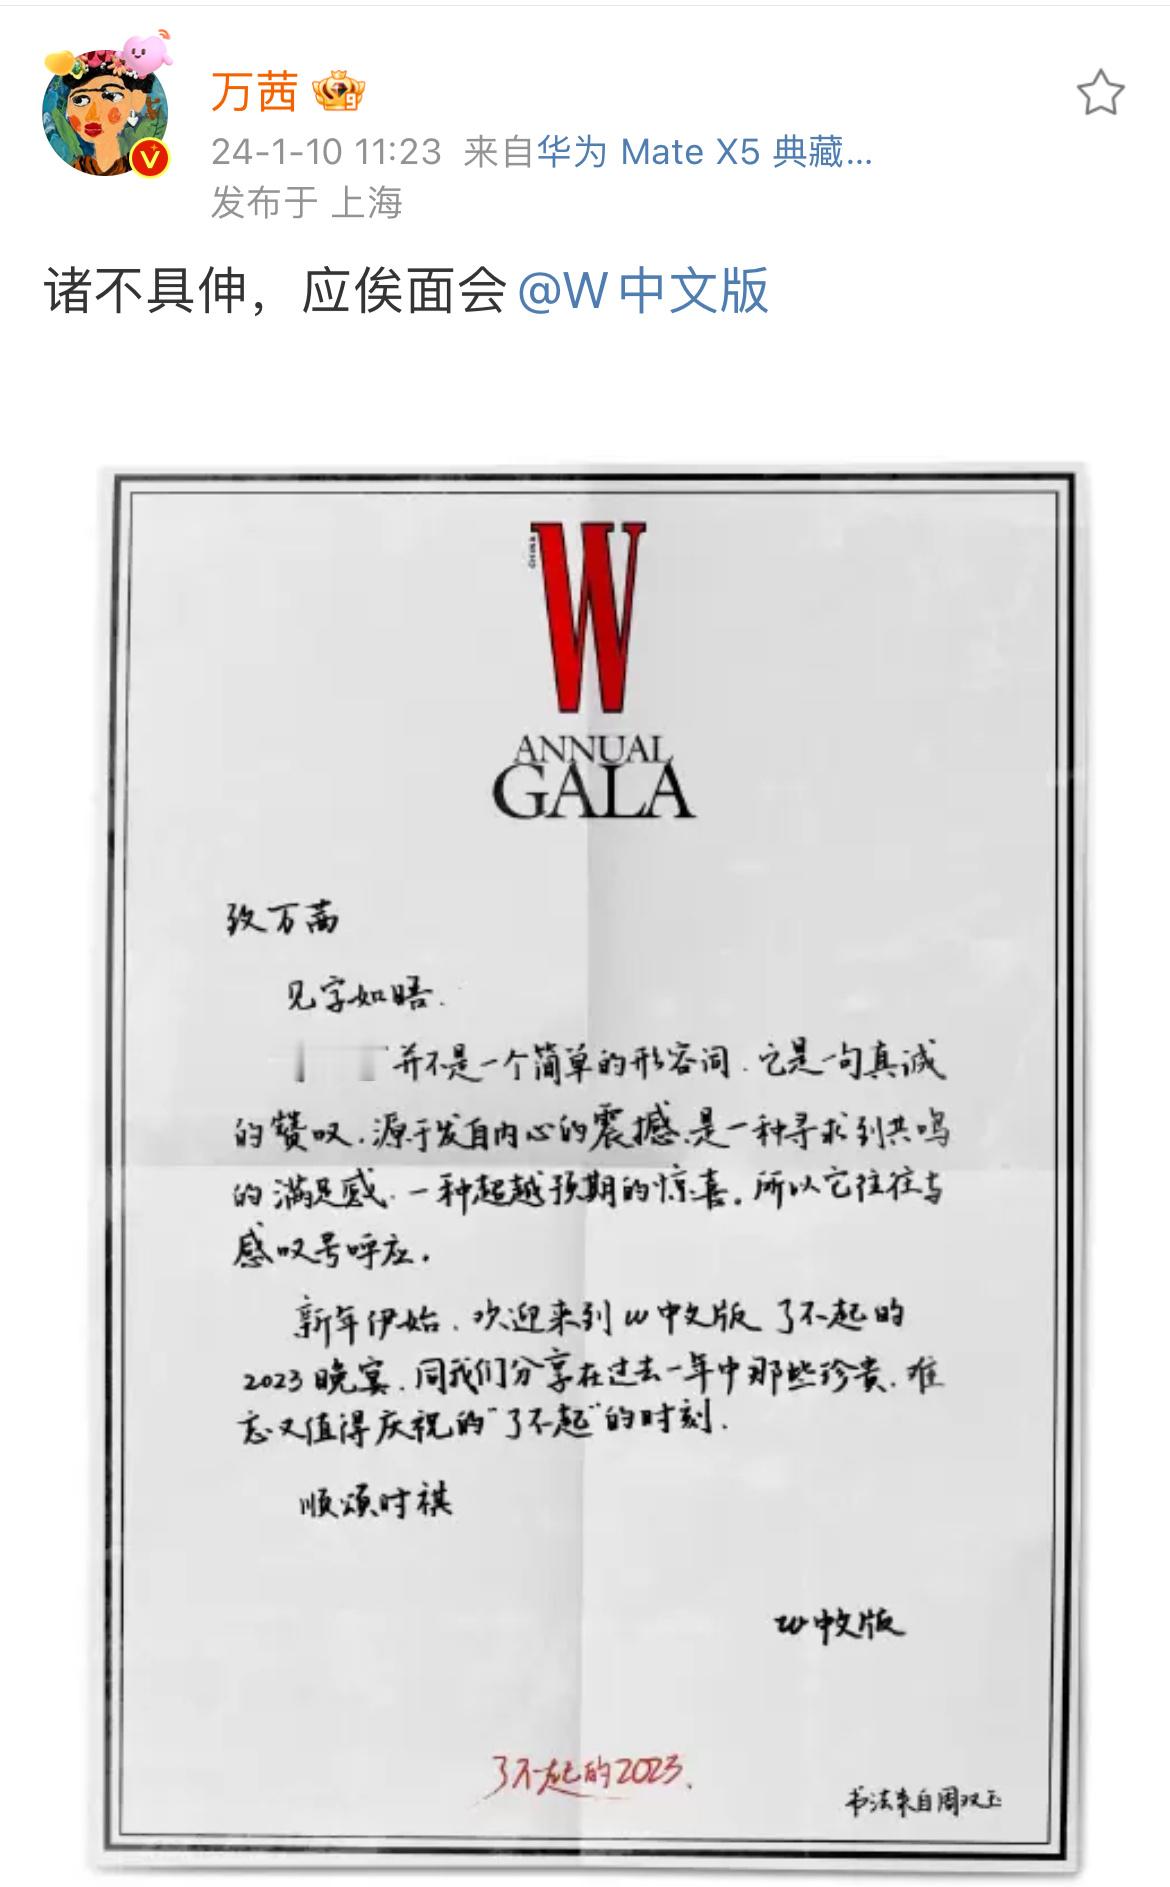 万茜
24-1-10 11:23 来自华为 Mate X5 典藏...
发布于 上海
诸不具伸，应俟面会 @W中文版
CHINA
W
ANNUAL
GALA
致万茜
见字如晤.
并不是一个简单的形容词.它是一句真诚
的赞叹.源于发自内心的震撼.是一种寻求到共鸣
的满足感.一种超越预期的惊喜.所以它往往与
感叹号呼应.
新年伊始.欢迎来到W中文版 了不起的
2023晚宴.同我们分享在过去一年中那些珍贵.难
忘又值得庆祝的"了不起"的时刻.
顺颂时祺
W中文版
了不起的2023.
书法来自周双玉